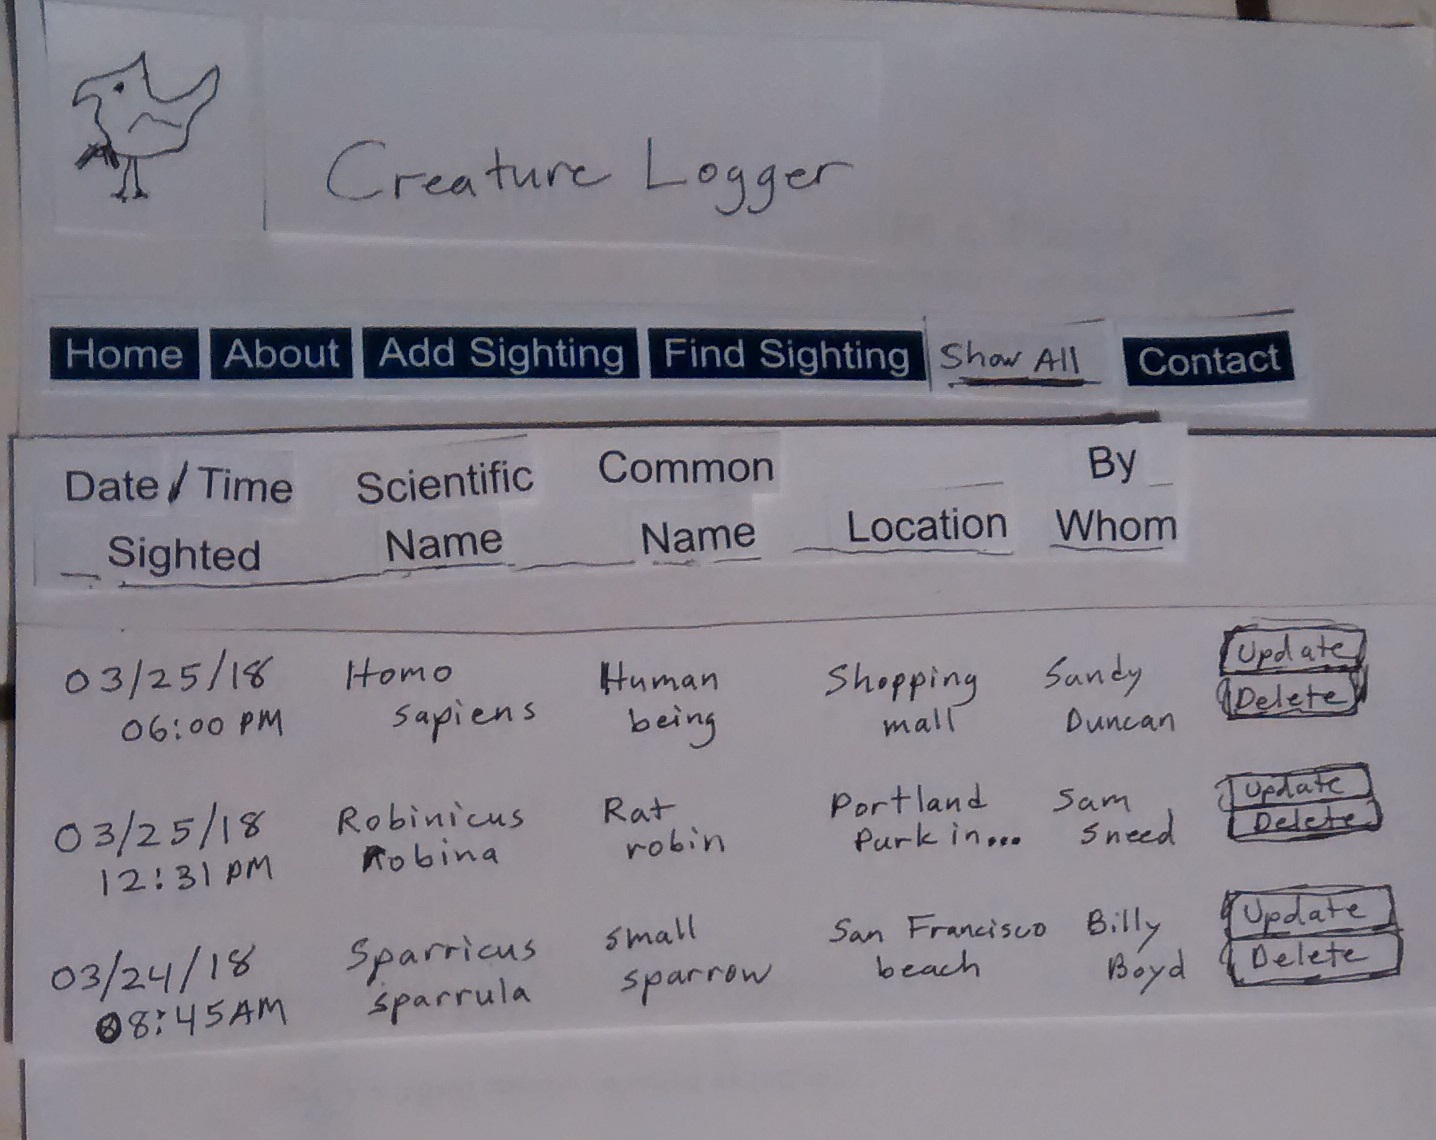 Creature Logger
Home About Add Sighting Find Sighting Show All Contact
Date/Time Sighted
Scientific Name
Common Name
Location
By Whom
03/25/18 06:00 PM
Homo sapiens
Human being
Shopping mall
Sandy Duncan
Update
Delete
03/25/18 12:31 PM
Robinicus Robina
Rat robin
Portland Park in...
Sam Sneed
Update
Delete
03/24/18 08:45 AM
Sparricus sparrula
small sparrow
San Francisco beach
Billy Boyd
Update
Delete